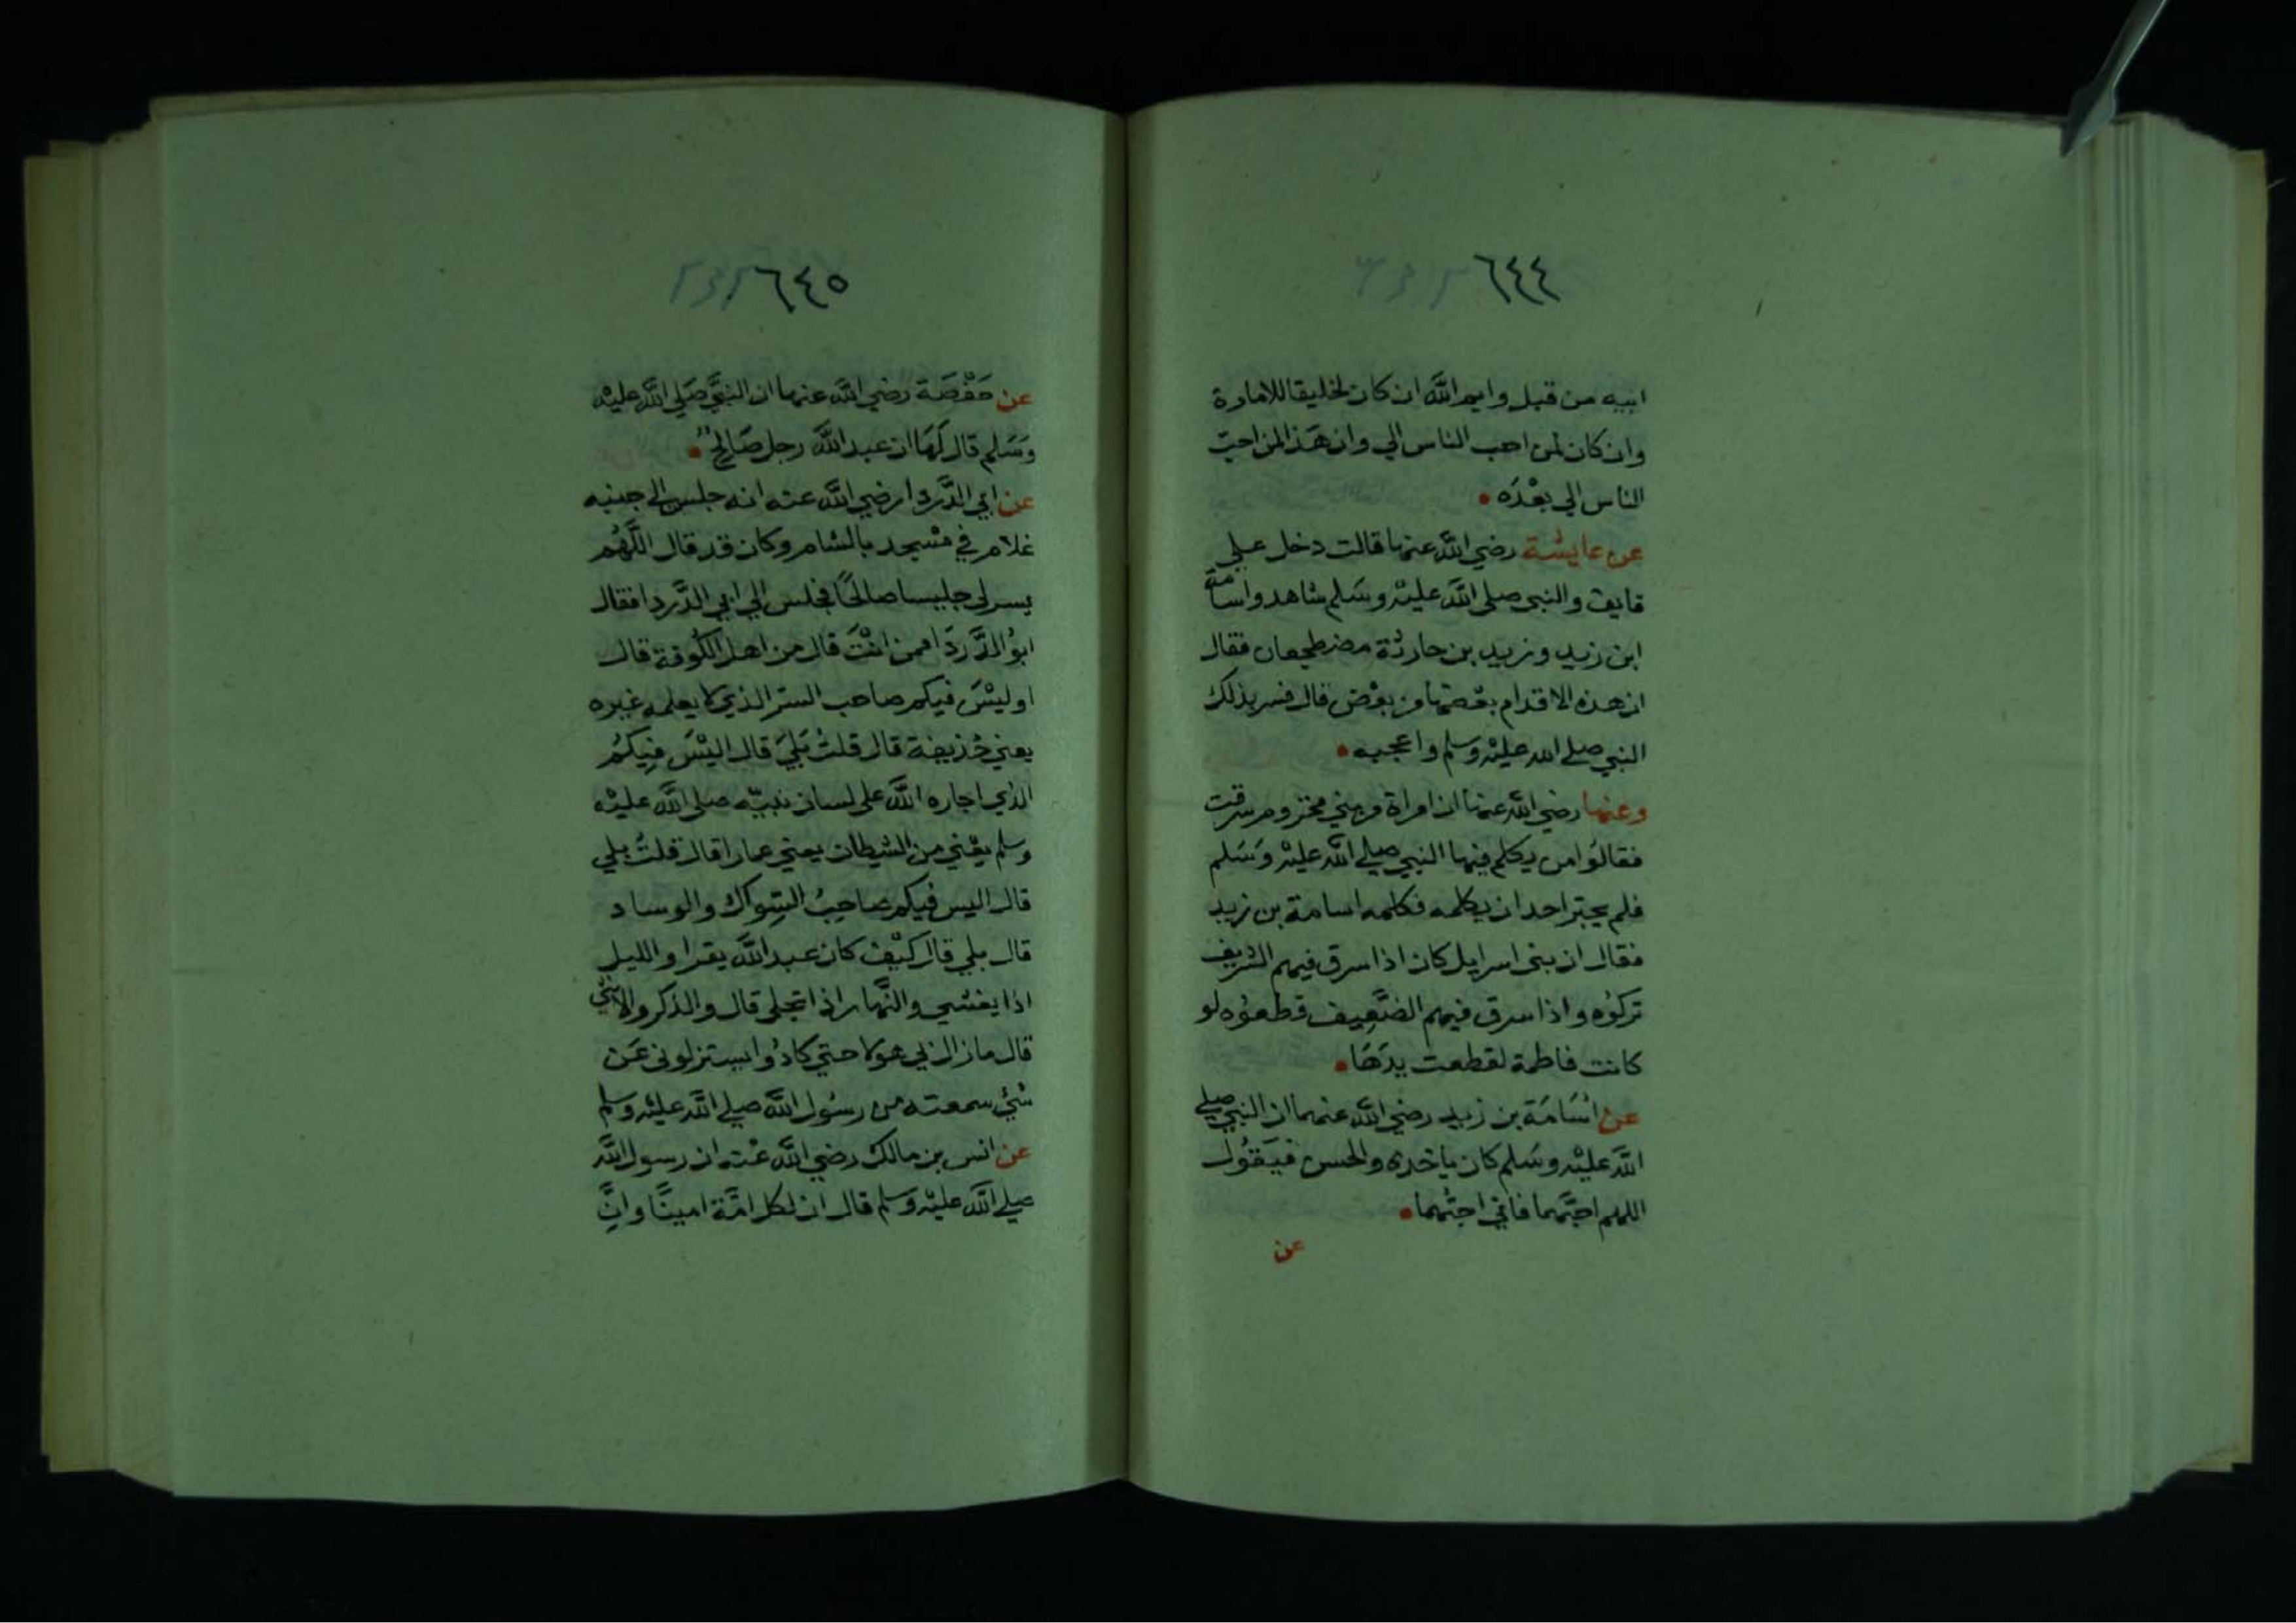 ٦٤٤
ابيه من قبل وايم الله ان كان لخليقا للامارة
وان كان لمن احب الناس الي وان هذا لمن احب
الناس الي بعْدَه
عن عايشة رضي الله عنها قالت دخل علي
قايف والنبي صلى الله عليْه وسَلم شاهد واسامة
ابن زيد وزيد بن حارثة مضطجعان فقال
ان هذه الاقدام بعْضها من بعْض قال فسر بذلك
النبي صلى الله عليْه وسلم واعجبه
وعنها رضي الله عنها ان امراة من بني مخزوم سرقت
فقالوُا من يكلم فيها النبي صلى الله عليْه وَسَلم
فلم يجتر احد ان يكلمه فكلمه اسامة بن زيد
فقال ان بني اسرايل كان اذا سرق فيهم الشريف
تركوُه واذا سرق فيهم الضَّعِيف قطعوُه لو
كانت فاطمة لقطعت يدَهَا
عن اسَامَة بن زيد رضي الله عنهما ان النبي صلى
الله عليْه وسَلم كان ياخذه والحسن فيَقوُل
اللهم احبَّهما فاني احبُّهما
عن
٦٤٥
عن حَفْصَة رضي الله عنها ان النبيَّ صَلى الله عليْه
وَسَلم قال لَهَا ان عبد الله رجل صَالحٌ
عن ابي الدَّردا رضي الله عنه انه جلس الى جنبه
غلام في مسْجد بالشام وكان قد قال اللَّهُم
يسر لي جليسا صالحًا فجلس الي ابي الدَّردا فقال
ابوُ الدَّردَا ممن انْتَ قال من اهل الكوُفة قال
اوليْسَ فيكم صاحب السّر الذي لا يعلمه غيره
يعني حُذيفة قال قلتُ بَليَ قال اليْسَ فِيكمُ
الذي اجاره الله على لسان نبيّه صلى الله عليْه
وسلم يعْني من الشيطان يعني عمارا قال قلتُ بلي
قال اليس فيكم صاحِبُ السِّواك والوساد
قال بلي قال كيْف كان عبد الله يقرا والليل
اذا يغشي والنَّهار اذا تجلى قال والذكر والانثي
قال ما زال بي هولا حتي كادُوا يستزلوني عَن
شيْ سمعته من رسُول الله صلي الله عليْه وسلم
عن انس بن مالك رضي الله عنْه ان رسول الله
صلي الله عليْه وسلم قال ان لكل امَّة امينًا وانَّ